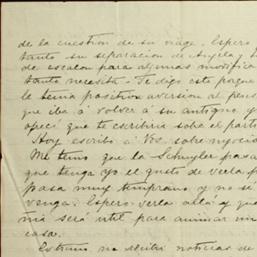 de la cuestion de su viage. Espero
tanto su separacion de Angela y
de escalon para algunas modific
tanto necesita. Te digo esto porque
le tenia positiva aversion al pens
que iba á volver á su antiguo y
ofreci que te escribiria sobre el parti
Hoy escribo á Vos. sobre negocio
Me temo que la Schuyler pasa
que tenga yo el gusto de verla p
pasa muy temprano y no sé
venga. Espero verla allá y qu
mi será util para animar un
casa.
Estraño no recibir noticias de